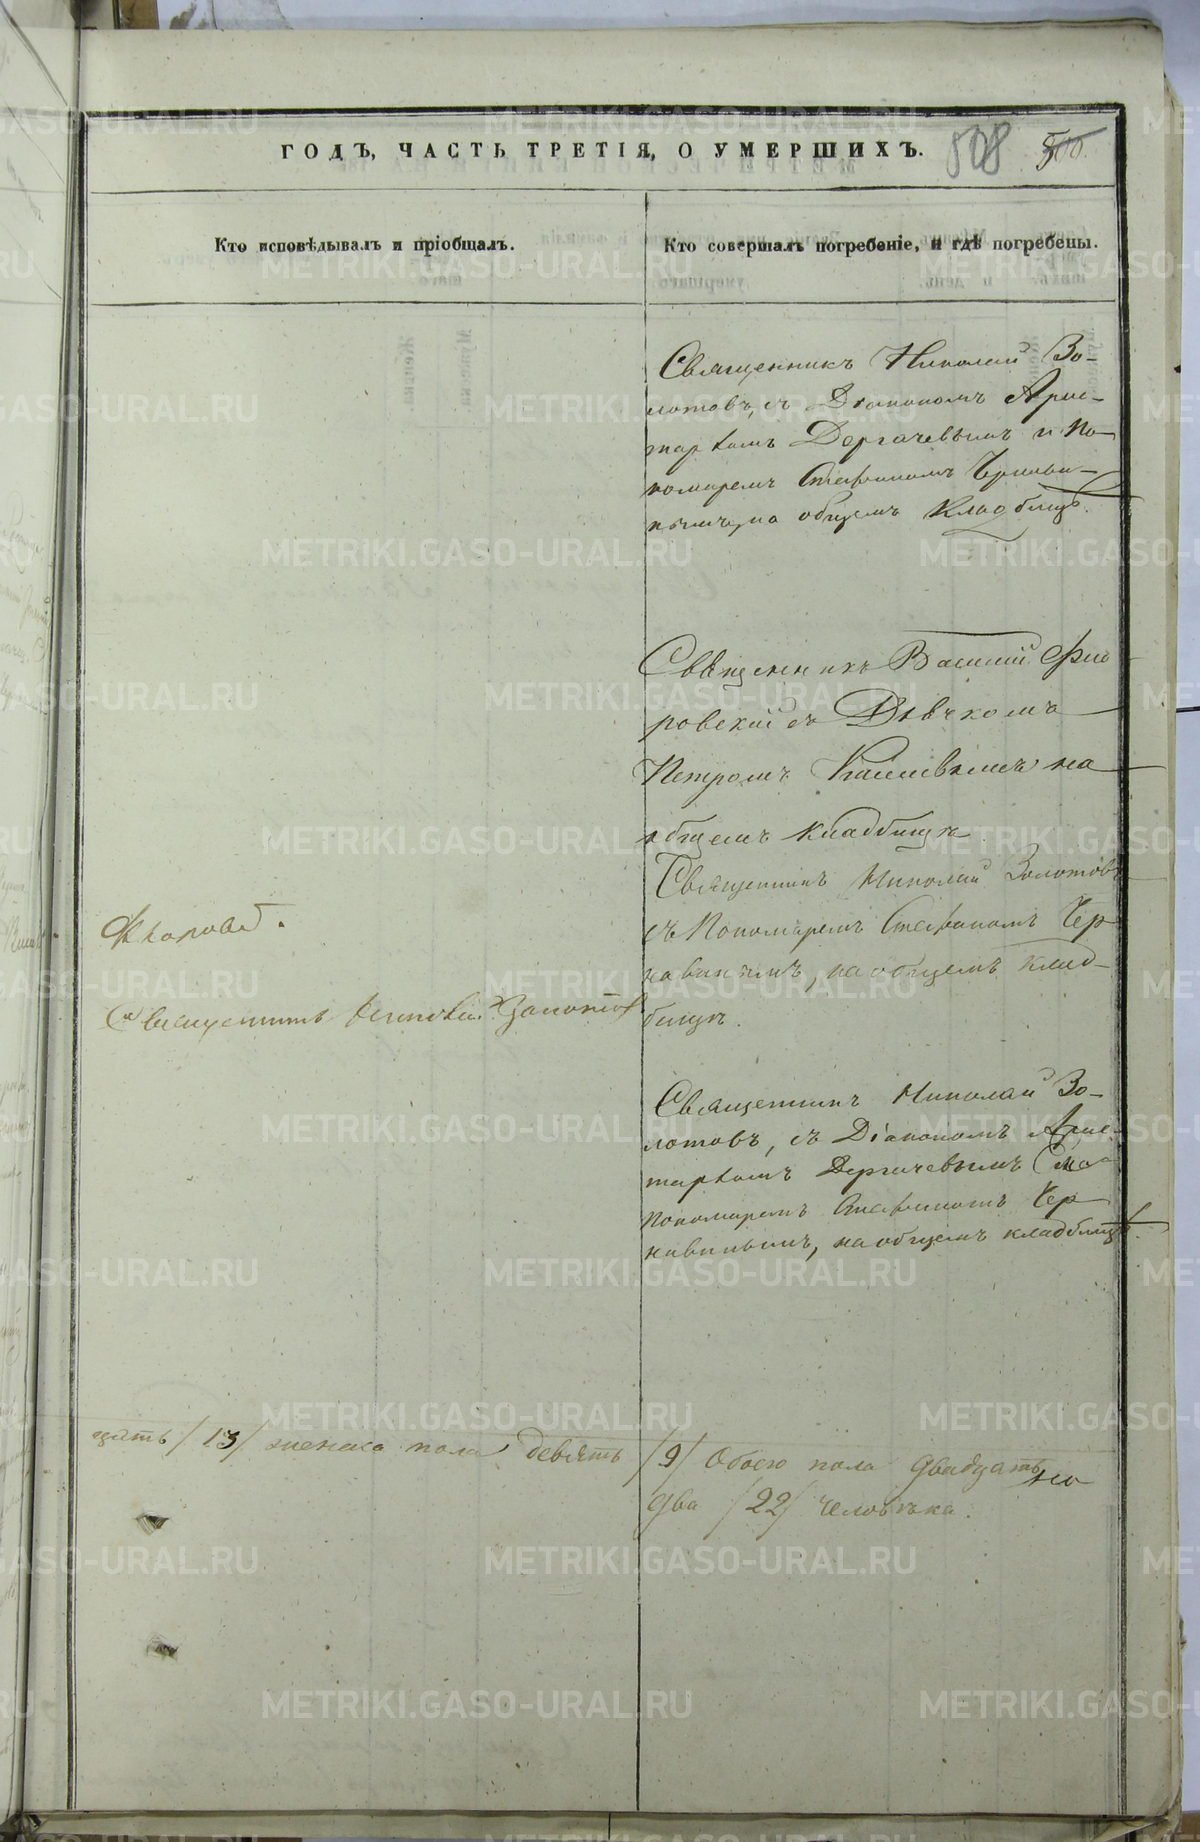 ГОДЪ, ЧАСТЬ ТРЕТІЯ, О УМЕРШИХЪ.
508
500.
Кто исповѣдывалъ и пріобщалъ.
Кто совершалъ погребеніе, и гдѣ погребены.
Священникъ Николай Зо-
лотовъ, съ Діакономъ Арис-
тархомъ Дергачевымъ и По-
номаремъ Стефаномъ
на общемъ Кладбищѣ.
Священникъ Василій
ровскій съ Дьячкомъ
Петромъ на
общемъ кладбищѣ
Священникъ Николай Золотовъ
съ Пономаремъ Стефаномъ Чер
навинымъ, на общемъ клад-
бищѣ.
Священникъ Николай Золотов
Священникъ Николай Зо-
лотовъ, съ Діакономъ Арис-
тархомъ Дергачевымъ
Пономаремъ Стефаномъ Чер
навинымъ, на общемъ кладбищѣ.
цать /13/ женска пола девять /9/ Обоего пола двадцать
два /22/ человѣка.
METRIKI.GASO-URAL.RU